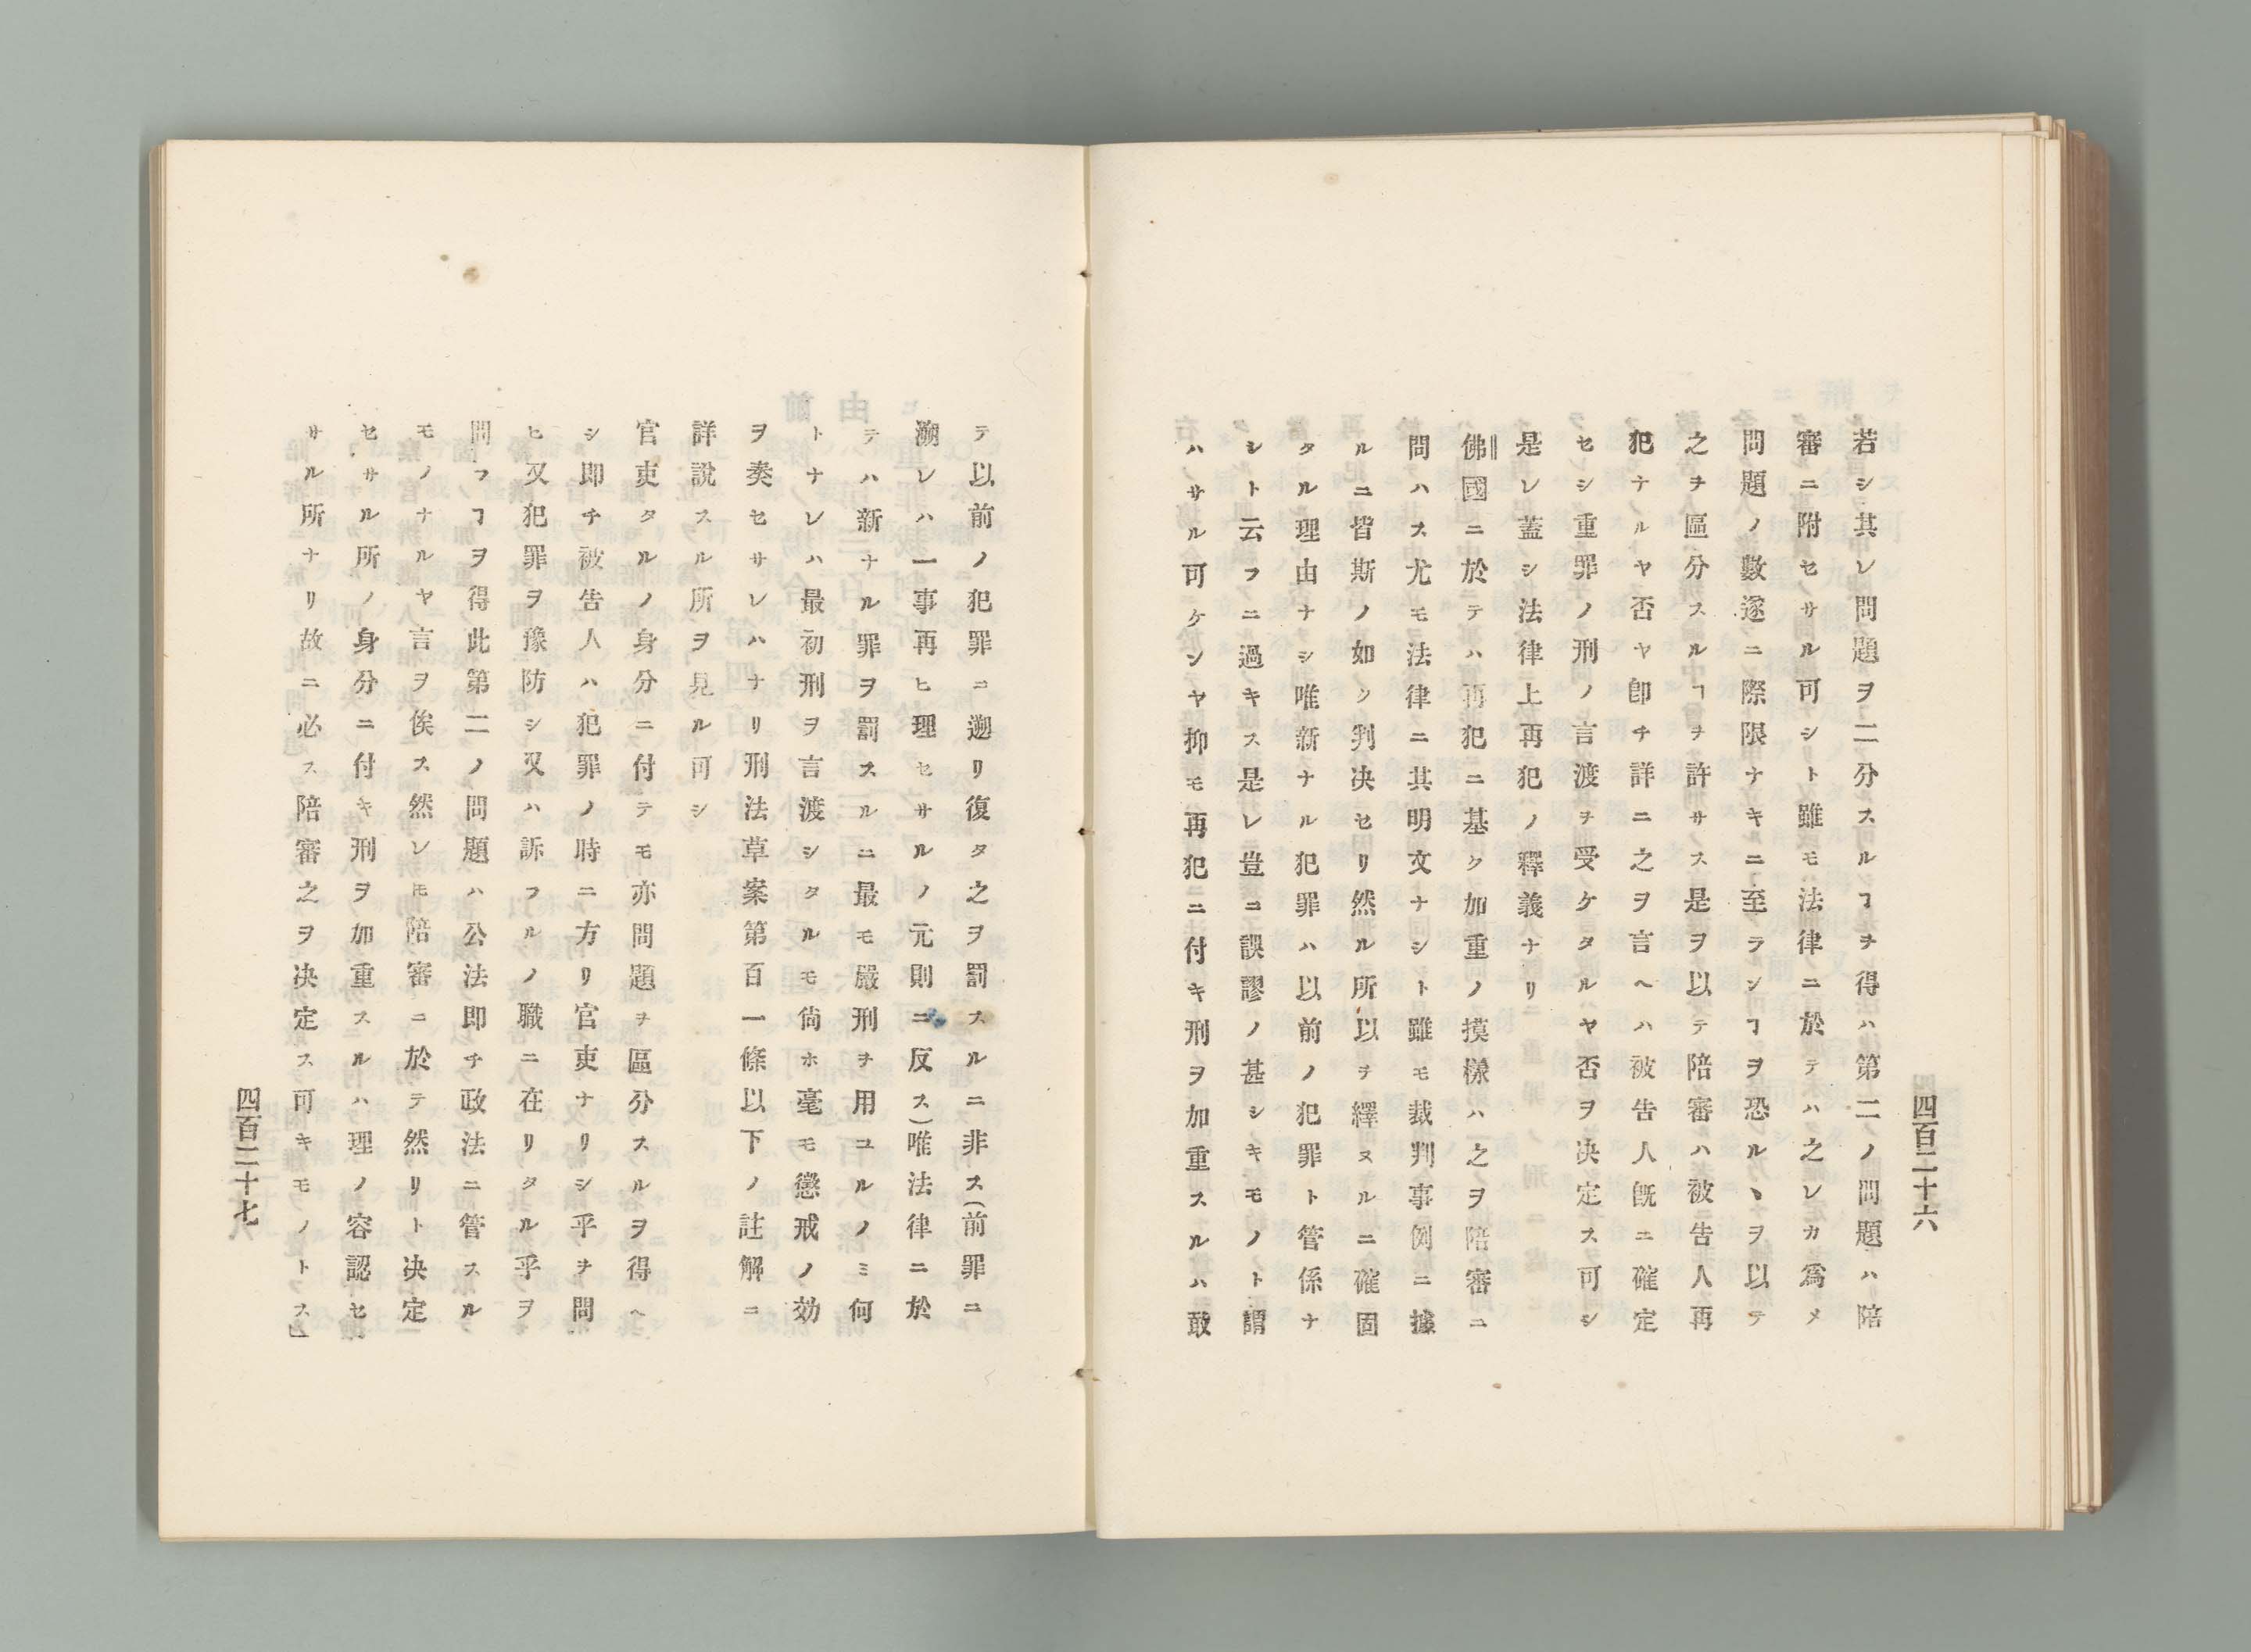 四百二十六
若シ其レ問題ヲ二分スルヿヲ得ハ第二ノ問題ハ陪
審ニ附セサル可シト雖モ法律ニ於テハ之レカ爲メ
問題ノ數遂ニ際限ナキニ至ランヿヲ恐ルヽヲ以テ
之ヲ區分スルヿヲ許サス是ヲ以テ陪審ハ被告人再
犯ナルヤ否ヤ卽チ詳ニ之ヲ言ヘハ被告人旣ニ確定
セシ重罪ノ刑ノ言渡ヲ受ケタルヤ否ヲ決定ス可シ
是レ蓋シ法律上再犯ノ釋義ナリ
佛國ニ於テハ再犯ニ基ク加重ノ摸樣ハ之ヲ陪審ニ
問ハス尤モ法律ニ其明文ナシト雖モ裁判事例ニ據
ルニ皆斯ノ如ク判决セリ然ル所以ヲ繹ヌルニ確固
タル理由ナシ唯新ナル犯罪ハ以前ノ犯罪ト管係ナ
シト云フニ過キス是レ豈ニ誤謬ノ甚シキモノト謂
ハサル可ケンヤ抑モ再犯ニ付キ刑ヲ加重スルハ敢
テ以前ノ犯罪ニ遡リ復タ之ヲ罰スルニ非ス(前罪ニ
溯レハ一事再ヒ理セサルノ元則ニ反ス)唯法律ニ於
テハ新ナル罪ヲ罰スルニ最モ嚴刑ヲ用ユルノミ何
トナレハ最初刑ヲ言渡シタルモ尙ホ毫モ懲戒ノ効
ヲ奏セサレハナリ刑法草案第百一條以下ノ註解ニ
詳說スル所ヲ見ル可シ
官吏タルノ身分ニ付テモ亦問題ヲ區分スルヲ得ヘ
シ即チ被告人ハ犯罪ノ時ニ方リ官吏ナリシ乎ヲ問
ヒ又犯罪ヲ豫防シ又ハ訴フルノ職ニ在リタル乎ヲ
問フヿヲ得此第二ノ問題ハ公法即チ政法ニ管スル
モノナルヤ言ヲ俟ス然レ𪜈陪審ニ於テ然リト决定
セサル所ノ身分ニ付キ刑ヲ加重スルハ理ノ容認セ
サル所ナリ故ニ必ス陪審之ヲ决定ス可キモノトス」
四百二十七